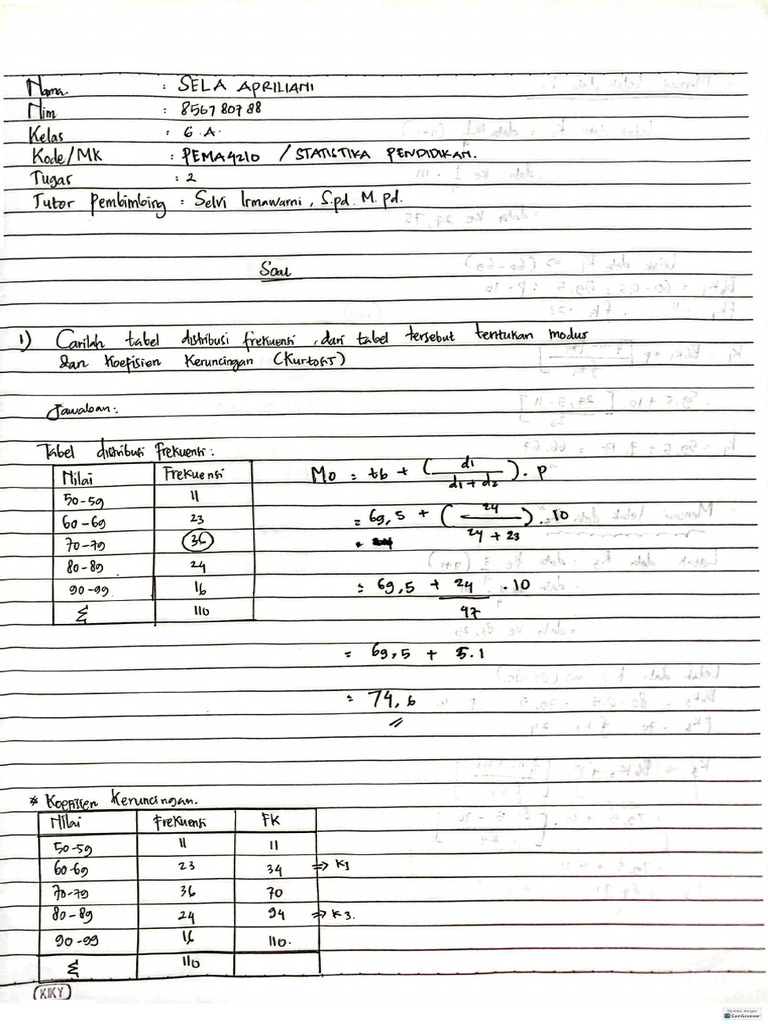 Nama : SELA APRILIANI
Nim : 856780788
Kelas : 6.A.
Kode/MK : PEMA4210 / STATISTIKA PENDIDIKAN.
Tugas : 2
Tutor Pembimbing : Selvi Irmawarni, S.pd. M.pd.
Soal
1) Carilah tabel distribusi frekuensi, dari tabel tersebut tentukan modus
dan koefisien keruncingan (kurtosis)
Jawaban:
Tabel distribusi frekuensi:
Nilai Frekuensi
50-59 11
60-69 23
70-79 36
80-89 24
90-99 16
Σ 110
Mo = tb + (d1 / d1 + d2) . p
= 69,5 + (24 / 24 + 23) . 10
= 69,5 + 24 / 47 . 10
= 69,5 + 5.1
= 74,6
* Koefisien keruncingan.
Nilai Frekuensi FK
50-59 11 11
60-69 23 34 => K1
70-79 36 70
80-89 24 94 => K3.
90-99 16 110.
Σ 110
KIKY
Dipindai dengan
CamScanner